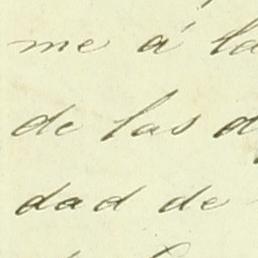 me á la
de las d
dad de